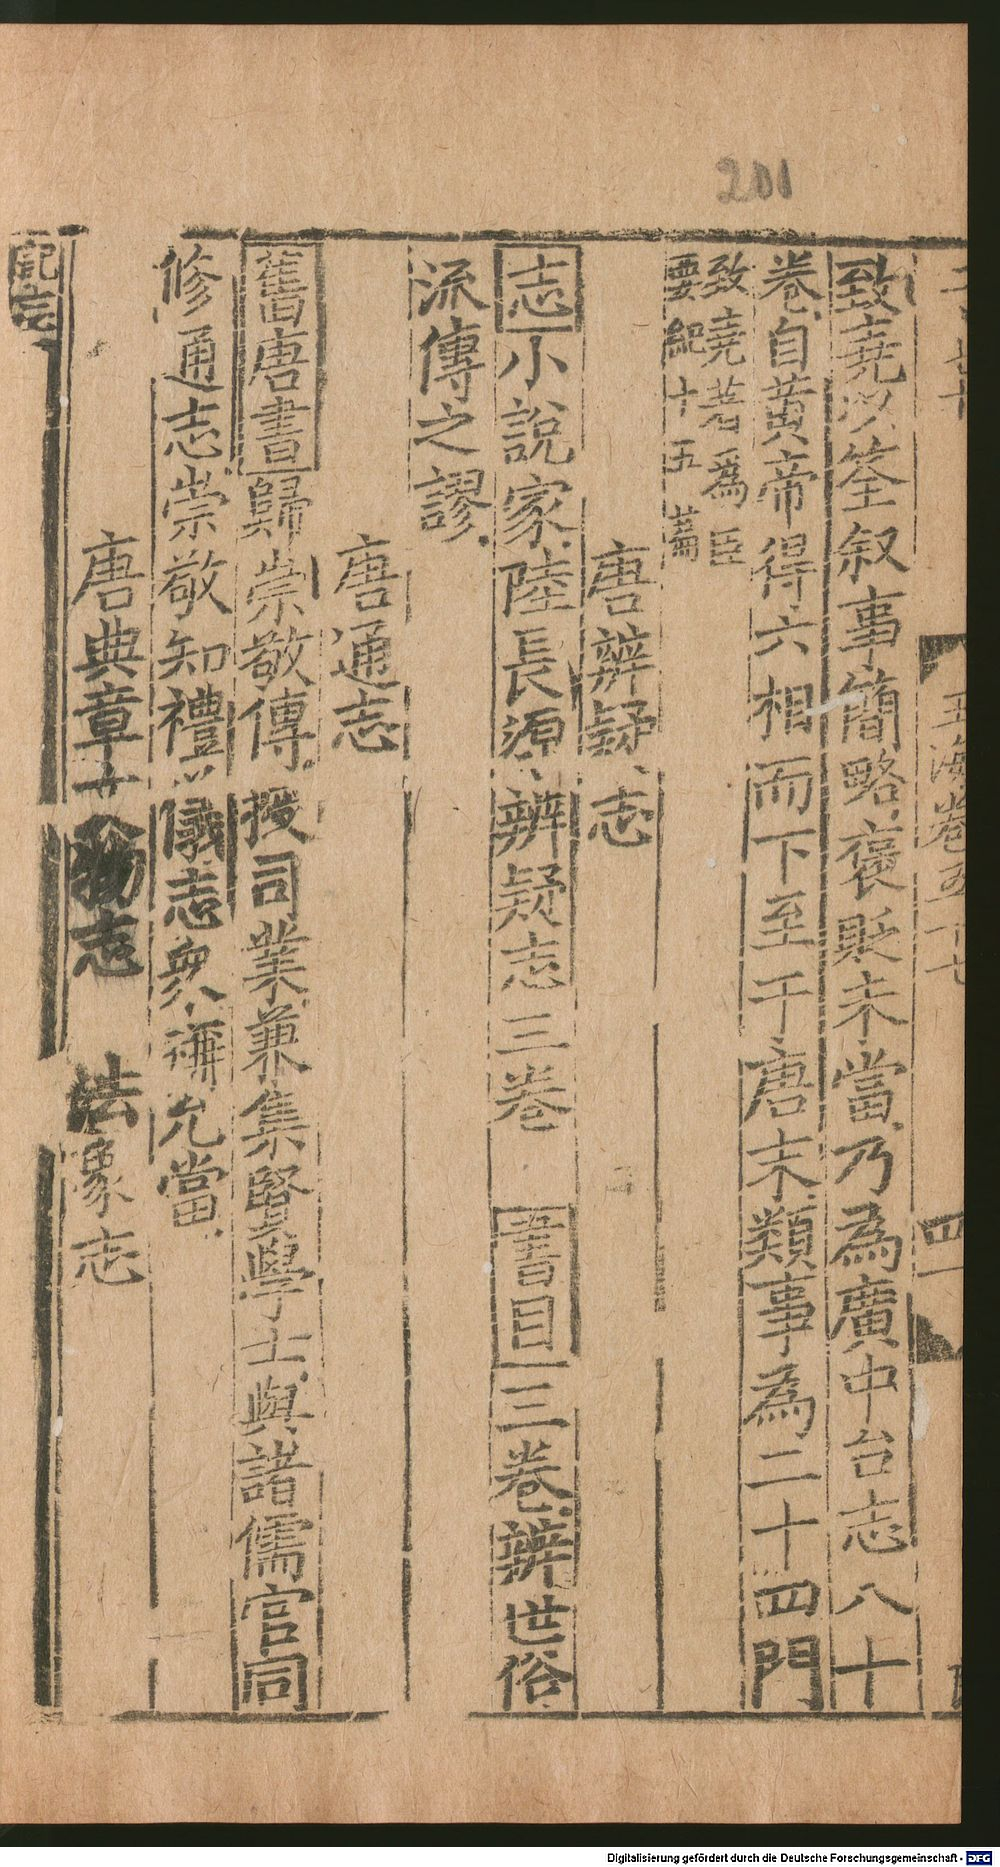 201
玉海卷五十七
四
致堯以筌叙事簡略褒貶未當乃為廣中台志八十
卷自黃帝得六相而下至于唐末類事為二十四門
致堯著為臣
要紀十五篇
唐辨疑志
志小說家陸長源辨疑志三卷 書目三卷辨世俗
流傳之謬
唐通志
舊唐書歸崇敬傳授司業兼集賢學士與諸儒官同
修通志崇敬知禮儀志眾稱允當
唐典章文物志 法象志
記志
Digitalisierung gefördert durch die Deutsche Forschungsgemeinschaft - DFG